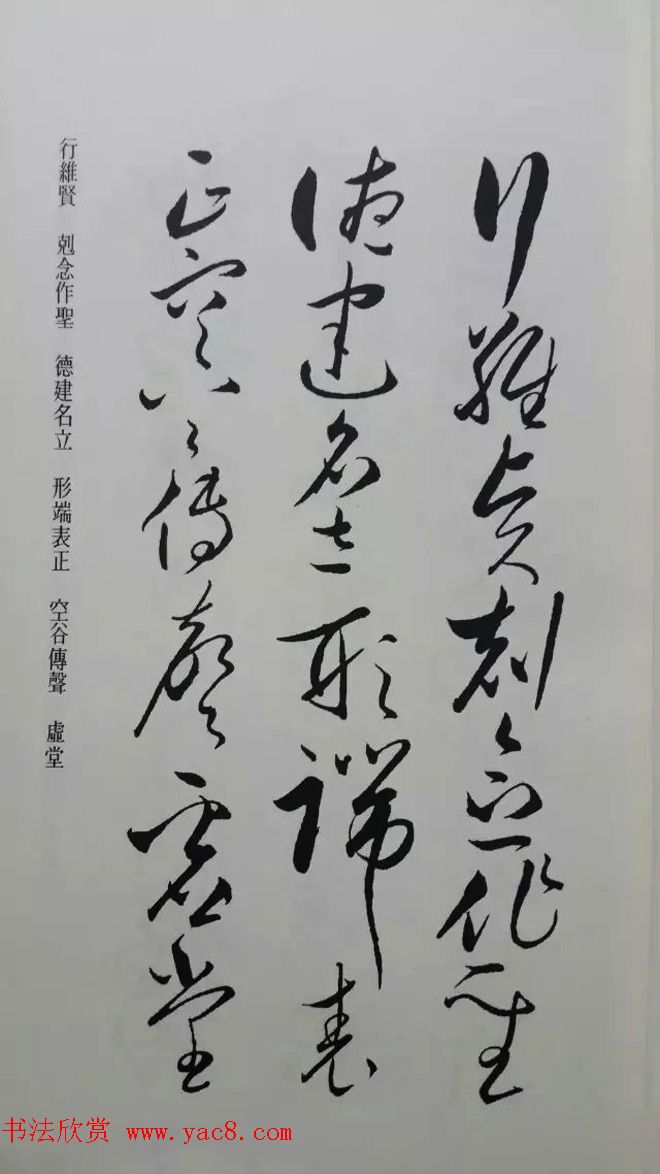 行維賢剋念作聖
德建名立形端表
正空谷傳聲虛堂
行維賢 剋念作聖 德建名立 形端表正 空谷傳聲 虛堂
书法欣赏 www.yac8.com